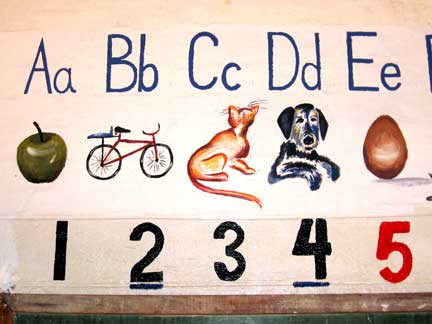 Aa Bb Cc Dd Ee
1 2 3 4 5